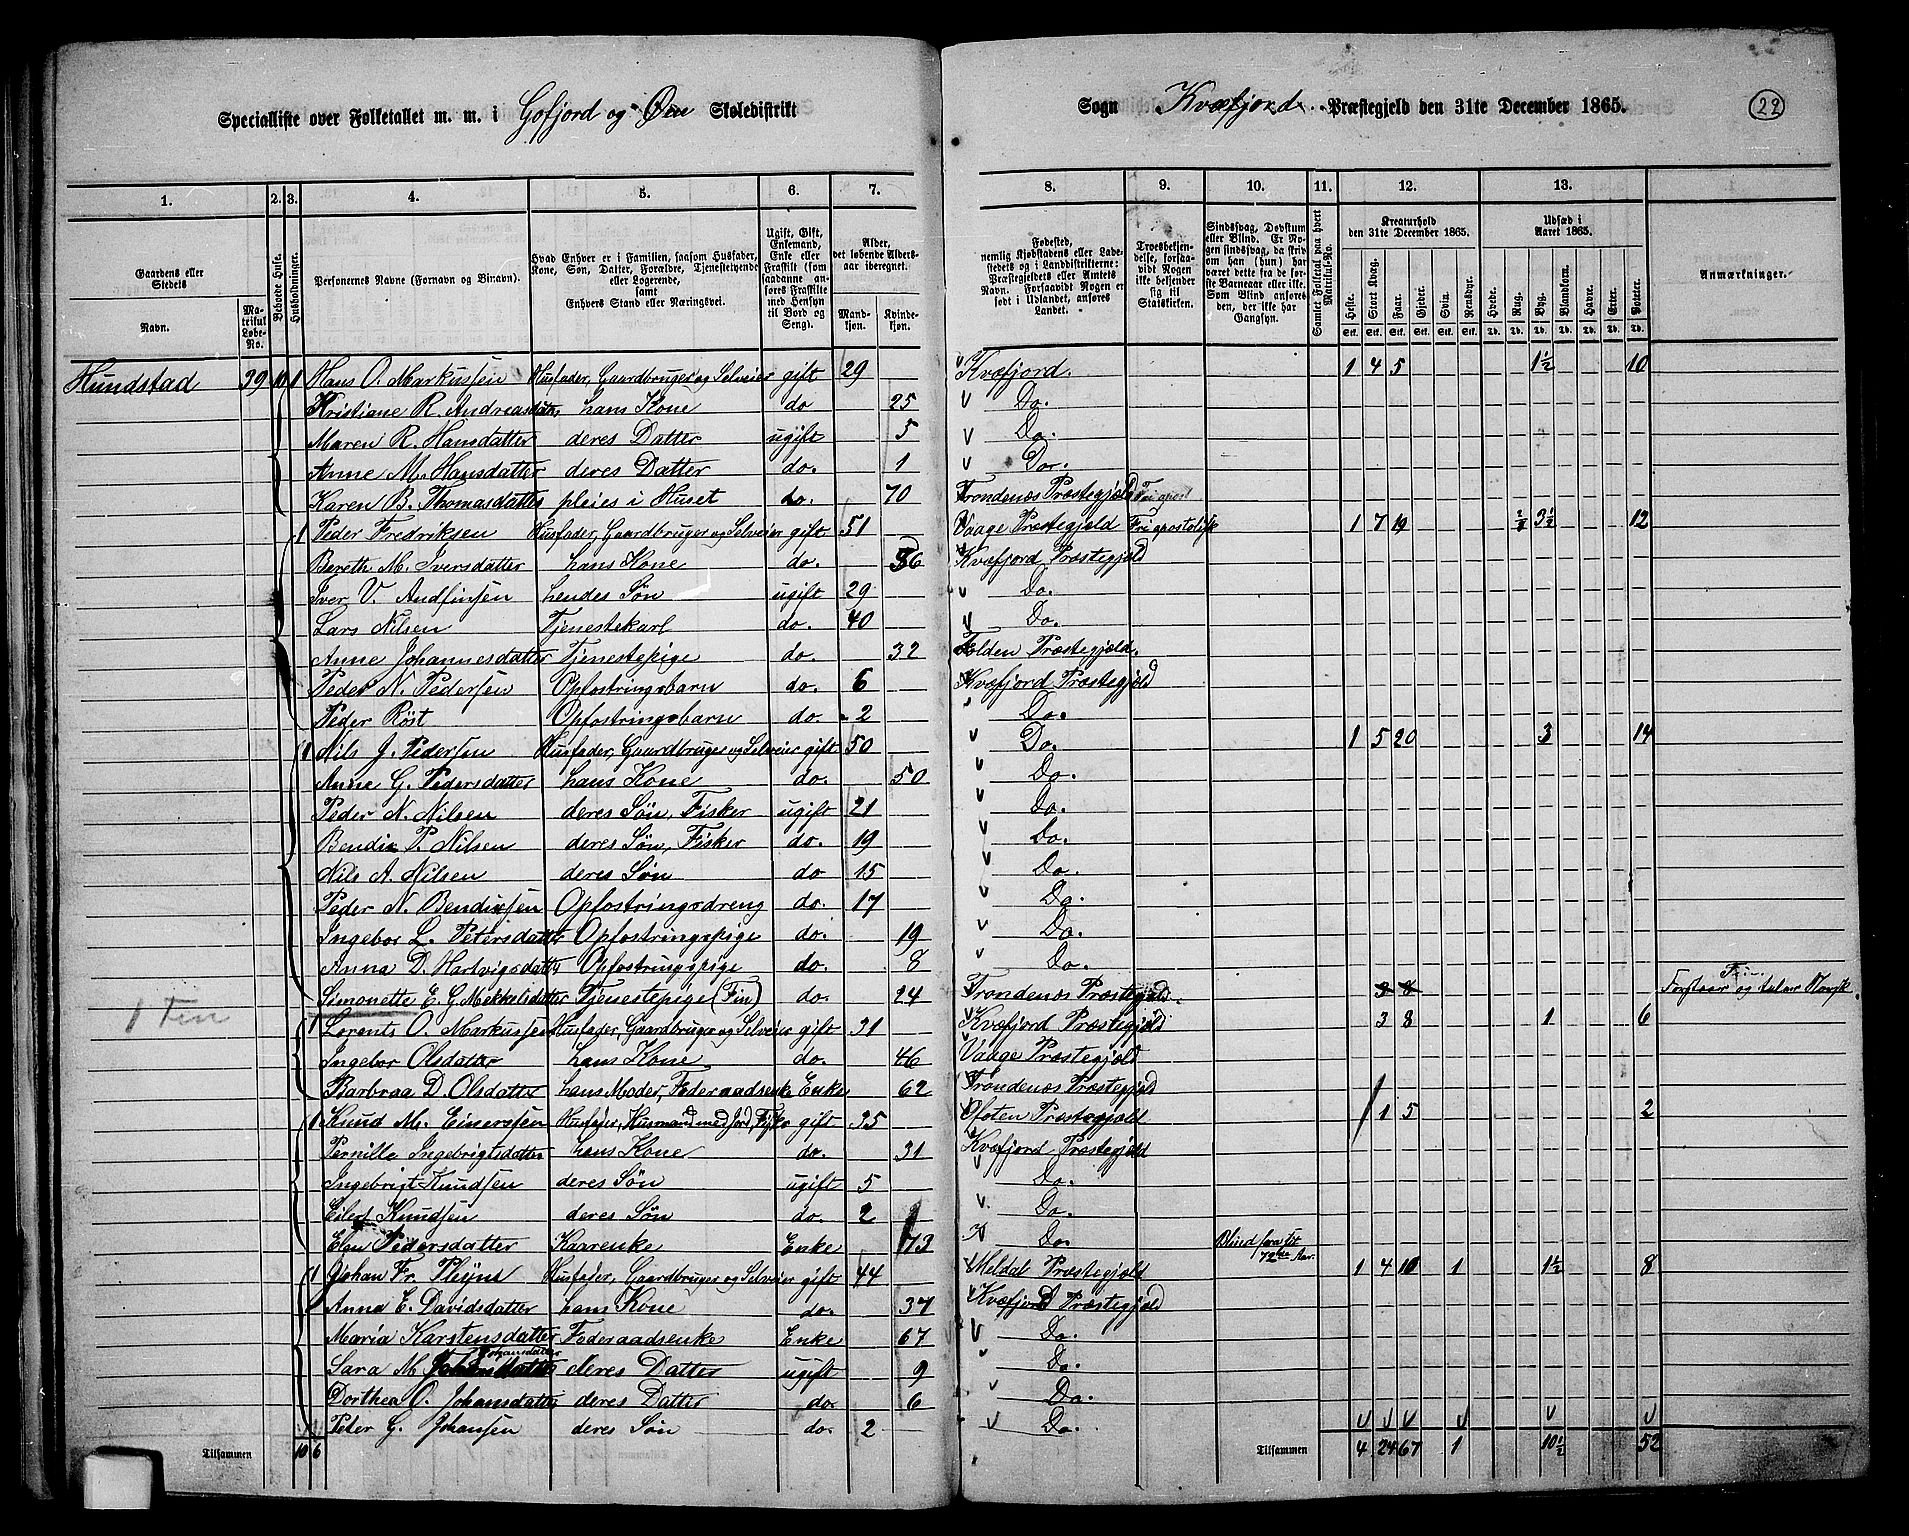 Specialliste over Folketallet m. m. i Gofjord og Øen Skoledistrikt
Sogn Kvæfjord Præstegjeld den 31te December 1865.
22
1. 2. 3. 4. 5. 6. 7.
8. 9. 10. 11. 12. 13.
Gaardens eller Stedets Navn.
Matrikul Løbe-No.
Beboede Huse.
Husholdninger.
Personernes Navne (Fornavn og Binavn).
Hvad Enhver er i Familien, saasom Husfader, Kone, Søn, Datter, Forældre, Tjenestetyende eller Logerende, samt Enhvers Stand eller Næringsvei.
Ugift, Gift, Enkemand, Enke eller Fraskilt (som saadanne anføres Fraskilte med Hensyn til Bord og Seng).
Alder, det løbende Alders-aar iberegnet.
Mandkjøn. Kvindekjøn.
Fødested, nemlig Kjøbstadens eller Ladestedets og i Landdistrikterne: Præstegjeldets eller Amtets Navn. Forsaavidt Nogen er født i Udlandet, anføres Landet.
Troesbekjendelse, forsaavidt Nogen ikke bekjender sig til Statskirken.
Sindssvag, Døvstum eller Blind. Er Nogen sindssvag, da skrives om han (hun) har været dette fra de første Barneaar eller ikke. Som Blind anføres den, der ikke har Gangsyn.
Samlet Folketal paa hvert Matrikul-No.
Kreaturhold den 31te December 1865.
Heste. Stort Kvæg. Faar. Gjeder. Svin. Rensdyr.
Udsæd i Aaret 1865.
Hvede. Rug. Byg. Blandkorn. Havre. Erter. Poteter.
Anmærkninger.
Hundstad 39 10 1 Hans O. Markussen Husfader, Gaardbruger og Selveier gift 29 Kvæfjord. 1 4 5 1½ 10
Kristiane R. Andreasdatter hans Kone do 25 Do.
Maren R. Hansdatter deres Datter ugift 5 Do.
Anne M. Hansdatter deres Datter do. 1 Do.
Karen B. Thomasdatter pleies i Huset do. 70 Trondenæs Præstegjæld
1 Peder Fredriksen Husfader, Gaardbruger og Selveier gift 51 Vaage Præstegjeld Friapostolisk 1 7 19 ½ 3½ 12
Bereth M. Iversdatter hans Kone do. 56 Kvæfjord Præstegjeld
Iver V. Andfinsen hendes Søn ugift 29 Do.
Lars Nilsen Tjenestekarl do. 40 Do.
Anne Johannesdatter Tjenestepige do. 32 Folden Præstegjæld.
Peder N. Pedersen Opfostringsbarn do. 6 Kvæfjord Præstegjeld
Peder Röst Opfostringsbarn do. 2 Do.
1 Nils J. Pedersen Husfader, Gaardbruger og Selveier gift 50 Do. 1 5 20 3 14
Anne G. Pedersdatter hans Kone do. 50 Do.
Peder N. Nilsen deres Søn, Fisker ugift 21 Do.
Bendix P. Nilsen deres Søn, Fisker do. 19 Do.
Nils A. Nilsen deres Søn do 15 Do.
Peder N. Bendixsen Opfostringsdreng do. 17 Do.
Ingebor L. Petersdatter Opfostringspige do. 19 Do.
Anna D. Hartvigsdatter Opfostringspige do. 8 Do.
Simonette E. G. Mekkelsdatter Tjenestepige (Fin) do. 24 Trondenæs Præstegjeld. 3 8 Fin. Forstaar og taler Norsk.
1 Fin
1 Lorents O. Markussen Husfader, Gaardbruger og Selveier gift 31 Kvæfjord Præstegjeld 3 8 1 6
Ingebor Olsdatter hans Kone do. 46 Vaage Præstegjeld
Barbraa D. Olsdatter hans Moder, Føderaadsenke Enke 62 Trondenæs Præstegjeld
1 Knud M. Einersen Husfader, Husmand med Jord, Fisker gift 35 Ofoten Præstegjeld 1 5 2
Pernille Ingebrigtsdatter hans Kone do. 31 Kvæfjord Præstegjeld
Ingebrigt Knudsen deres Søn ugift 5 Do.
Eilert Knudsen deres Søn do. 2 Do.
Elen Pedersdatter Kaarenke Enke 73 Do. Blind fra sit 72de Aar.
1 Johan Fr. Plejnt Husfader, Gaardbruger og Selveier gift 44 Meldal Præstegjeld 1 4 10 1 1½ 8
Anna E. Davidsdatter hans Kone do. 37 Kvæfjord Præstegjeld
Maria Karstensdatter Føderaadsenke Enke 67 Do.
Sara M. Johansdatter deres Datter ugift 9 Do.
Dorthea O. Johansdatter deres Datter do. 6 Do.
Peter G. Johansen deres Søn do. 2 Do.
Tilsammen 10 6
Tilsammen 4 24 67 1 10½ 52